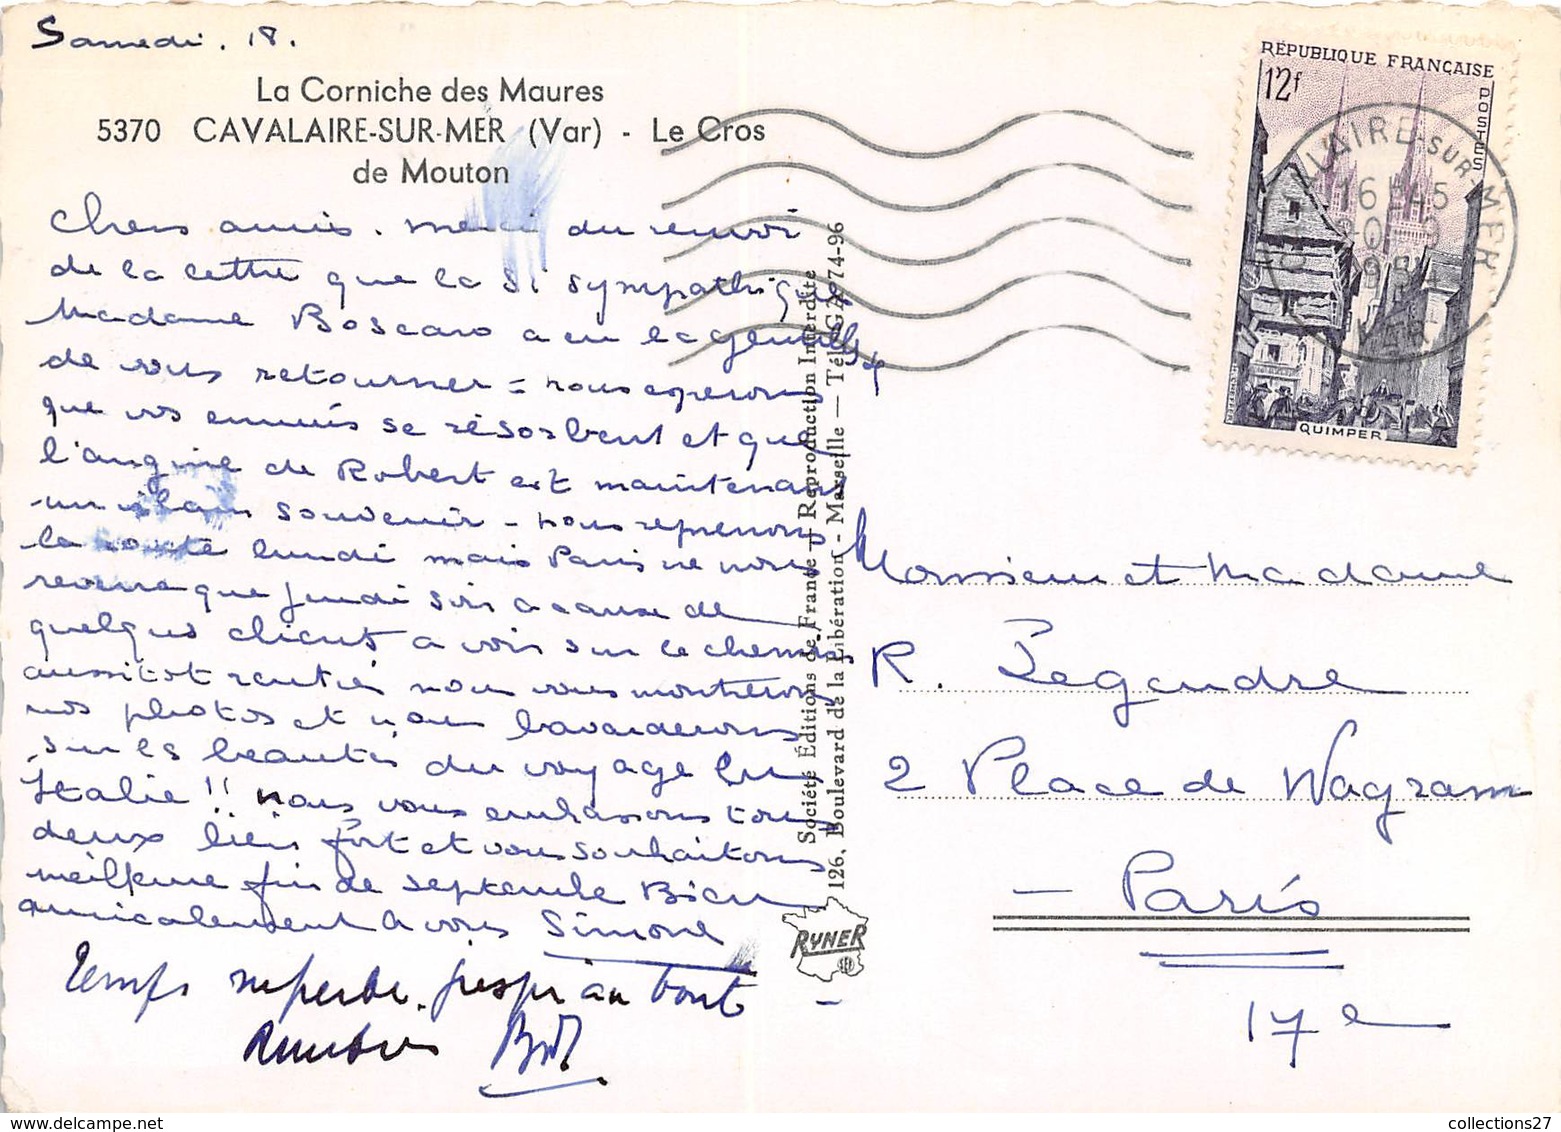 Samedi. 18.
La Corniche des Maures
5370 CAVALAIRE-SUR-MER (Var) - Le Cros
de Mouton
Chers amis. merci du renvoi
de la lettre que la si sympathique
Madame Boscaro a eu la gentillesse
de vous retourner = nous esperons
que vos ennuis se résorbent et que
l'angine de Robert est maintenant
un souvenir - nous reprenons
la route lundi mais Paris ne nous
reverra que jeudi soir a cause de
quelques clients a voir sur le chemin
aussitot rentrés nous vous montrerons
nos photos et nous bavarderons
sur les beautés du voyage en
Italie !! nous vous embrassons tous
deux bien fort et vous souhaitons
meilleure fin de septembre Bien
amicalement a vous Simone
Temps superbe. jusqu'au bout -
Société Éditions de France — Reproduction Interdite
126, Boulevard de la Libération - Marseille — Tél. GA. 74-96
RYNER
SEF
RÉPUBLIQUE FRANÇAISE
12f
POSTES
QUIMPER
CAVALAIRE-SUR-MER
16H45
VAR
Monsieur et Madame
R. Legendre
2 Place de Wagram
- Paris
17e
collections27